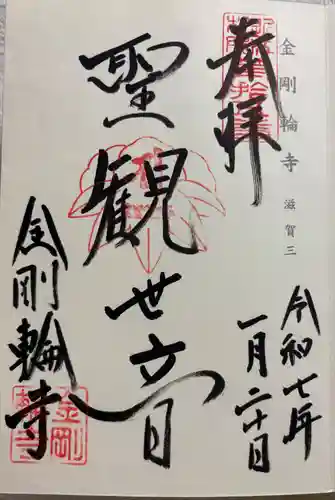 金剛輪寺 滋賀三
奉拝
令和七年
一月二十日
聖観世音
金剛輪寺
金剛輪寺